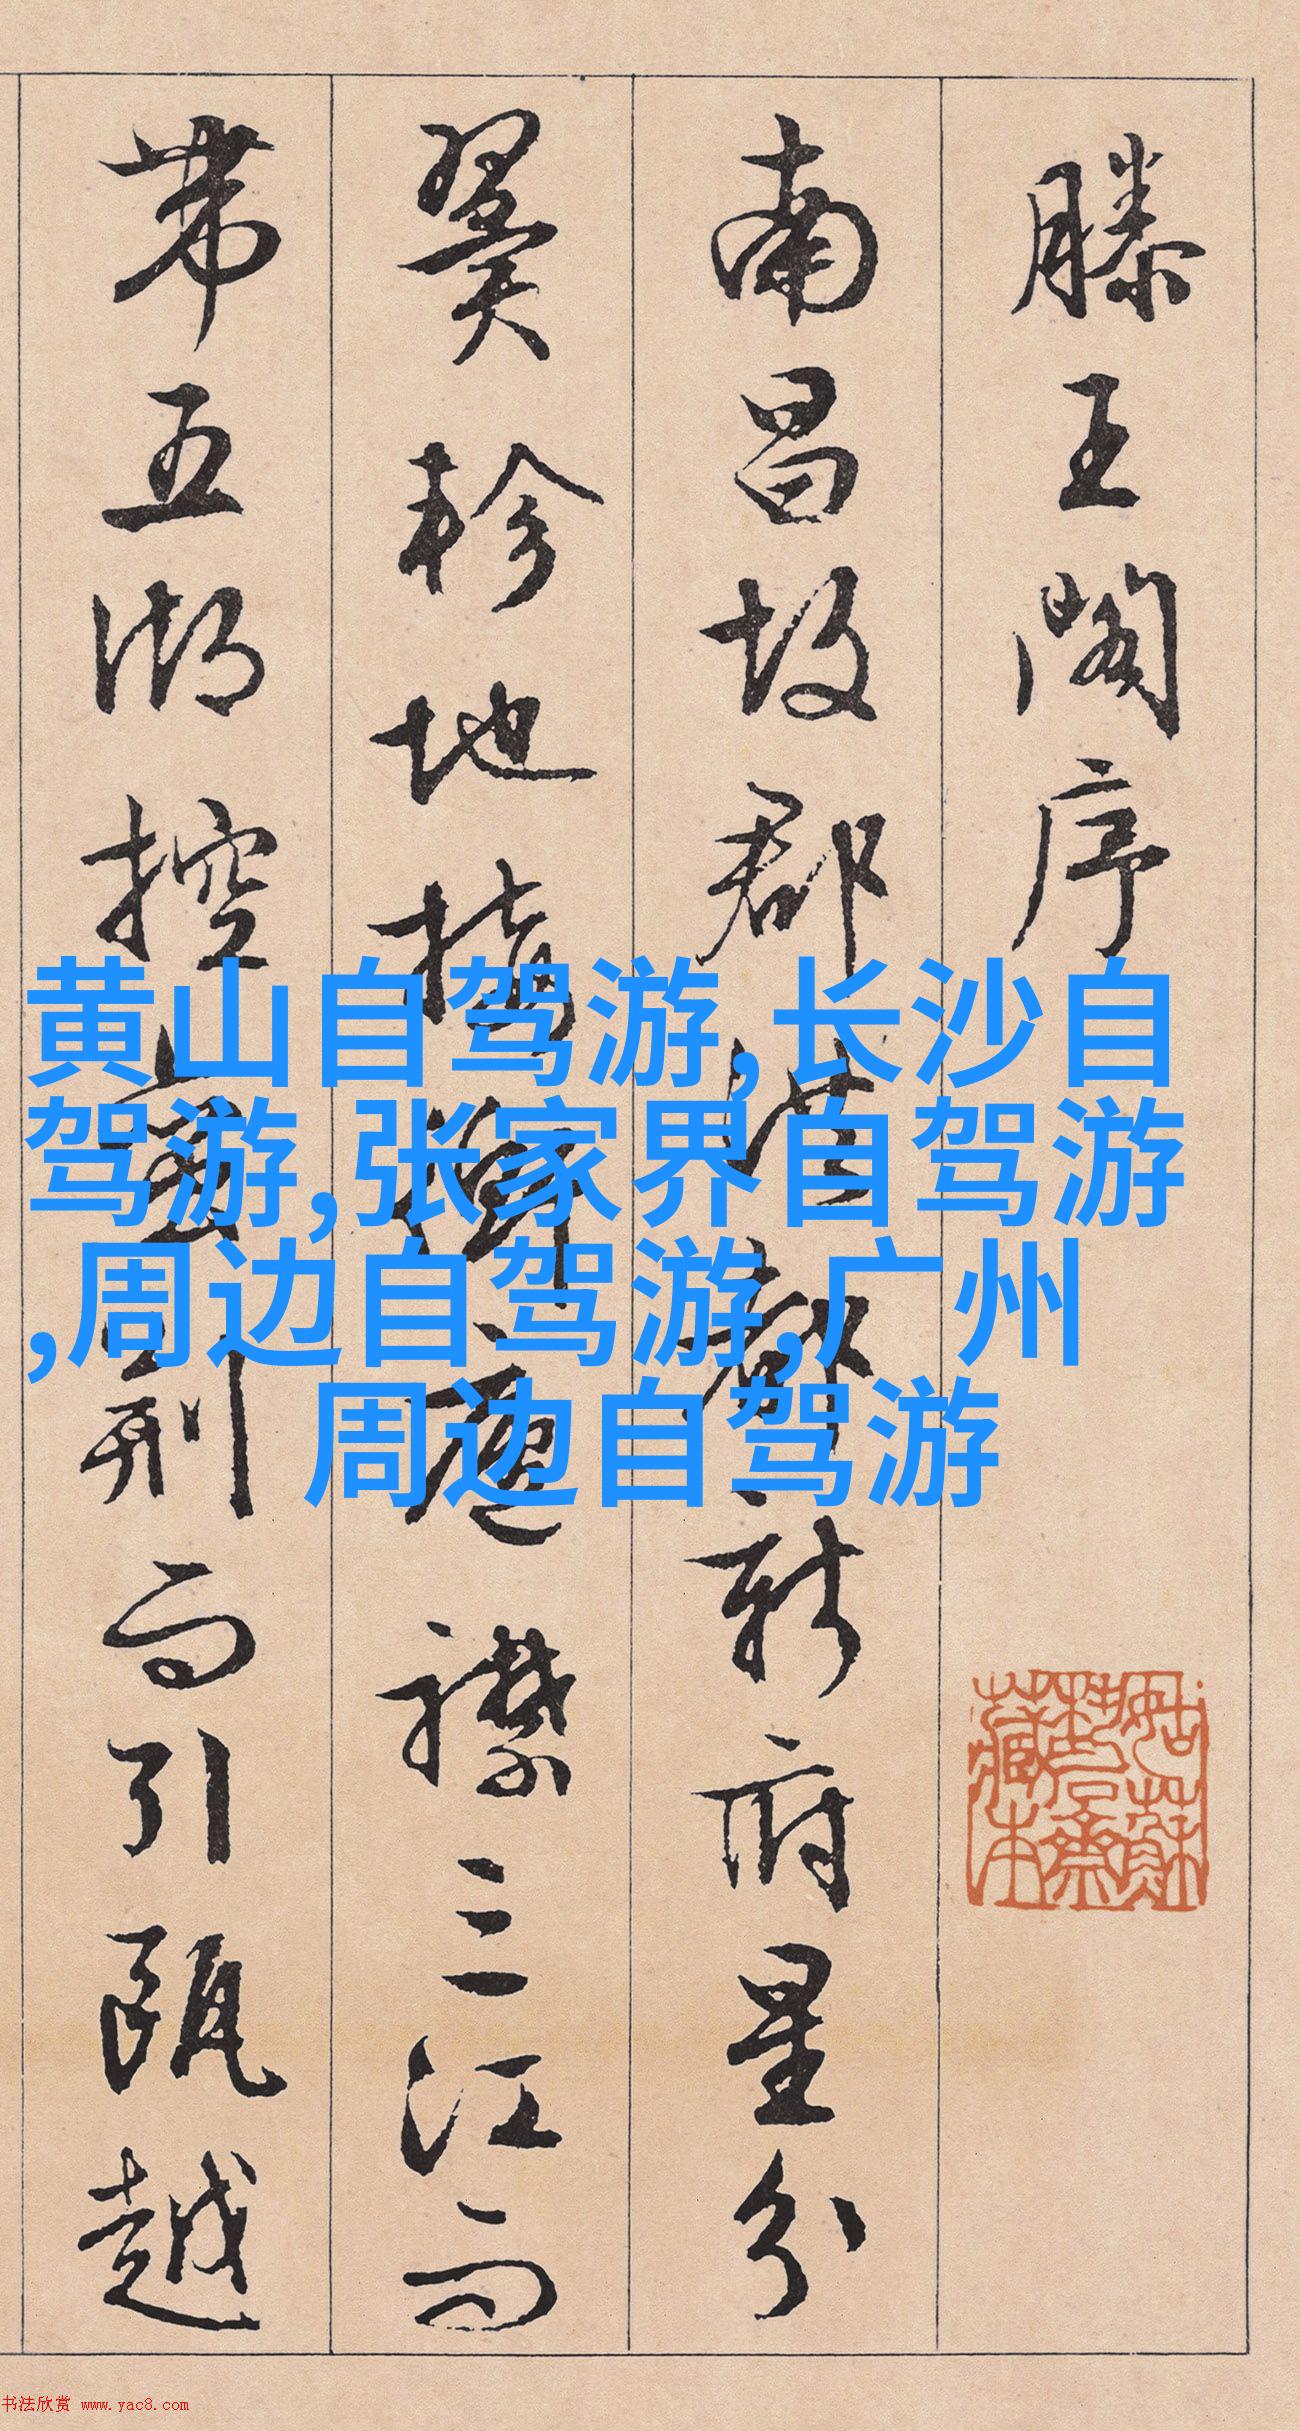 滕王阁序
南昌故郡洪都新府星分
翼轸地接衡庐襟三江而
带五湖控蛮荆而引瓯越
黄山自驾游,长沙自
驾游,张家界自驾游
,周边自驾游,广州
周边自驾游
姑苏
藏本
书法欣赏 www.yac8.com